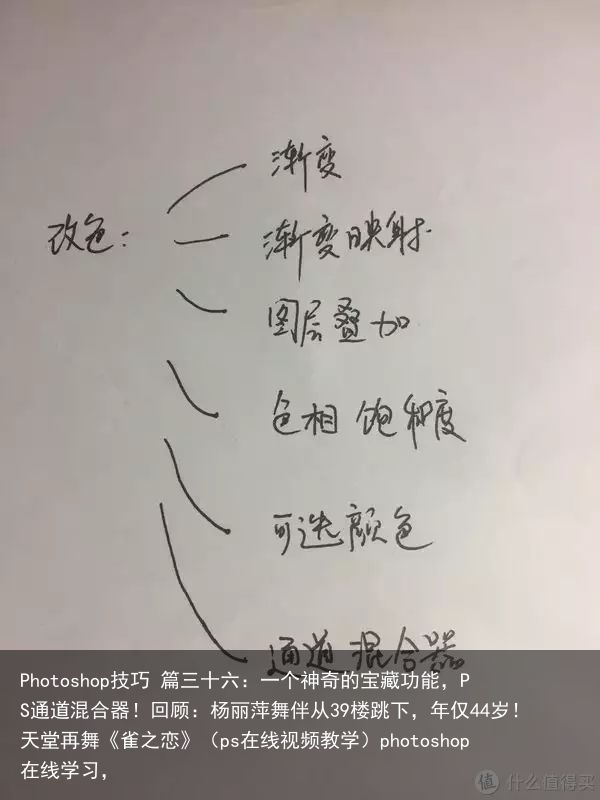 渐变
改色：
渐变映射
图层叠加
色相 饱和度
可选颜色
通道混合器
Photoshop技巧 篇三十六：一个神奇的宝藏功能，P
S通道混合器！回顾：杨丽萍舞伴从39楼跳下，年仅44岁！
天堂再舞《雀之恋》（ps在线视频教学）photoshop
在线学习，
值 什么值得买